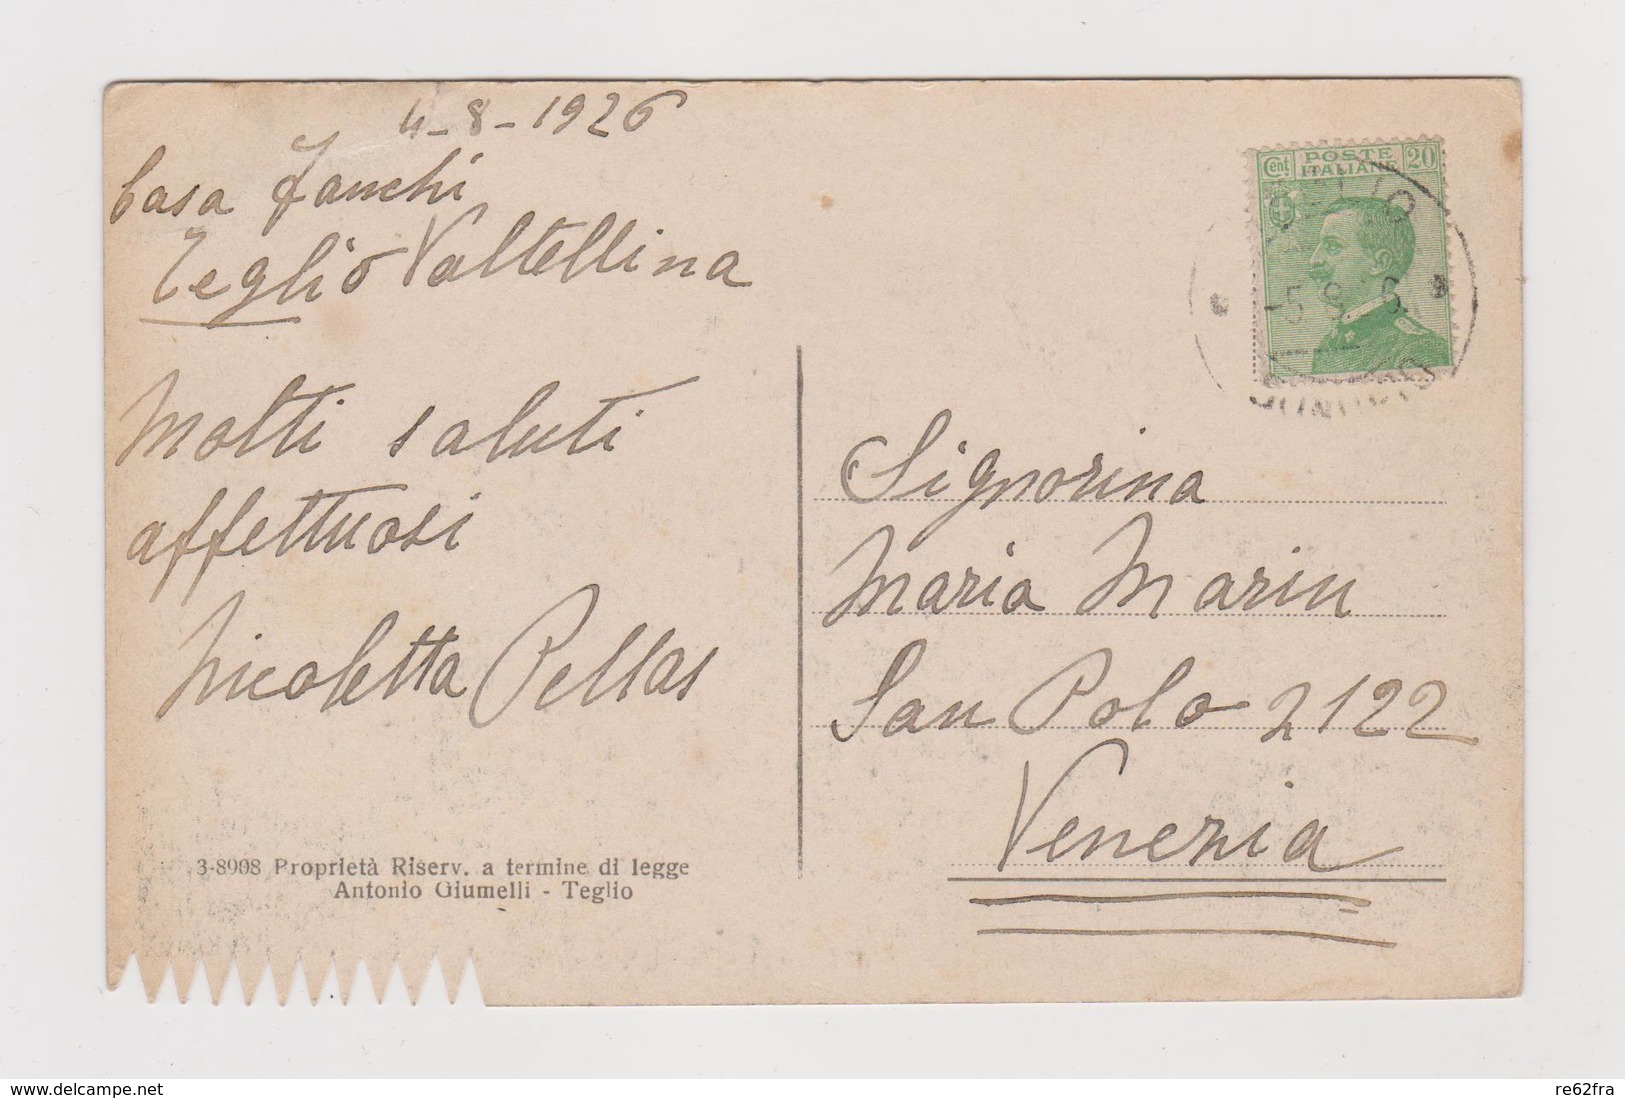 4-8-1926
Casa Fanchi
Teglio Valtellina
Molti saluti
affettuosi
Nicoletta Pellas
3-8908 Proprietà Riserv. a termine di legge
Antonio Giumelli - Teglio
Cent POSTE ITALIANE 20
-5.8. 6.
Signorina
Maria Marin
San Polo 2122
Venezia
delcampe.net
re62fra